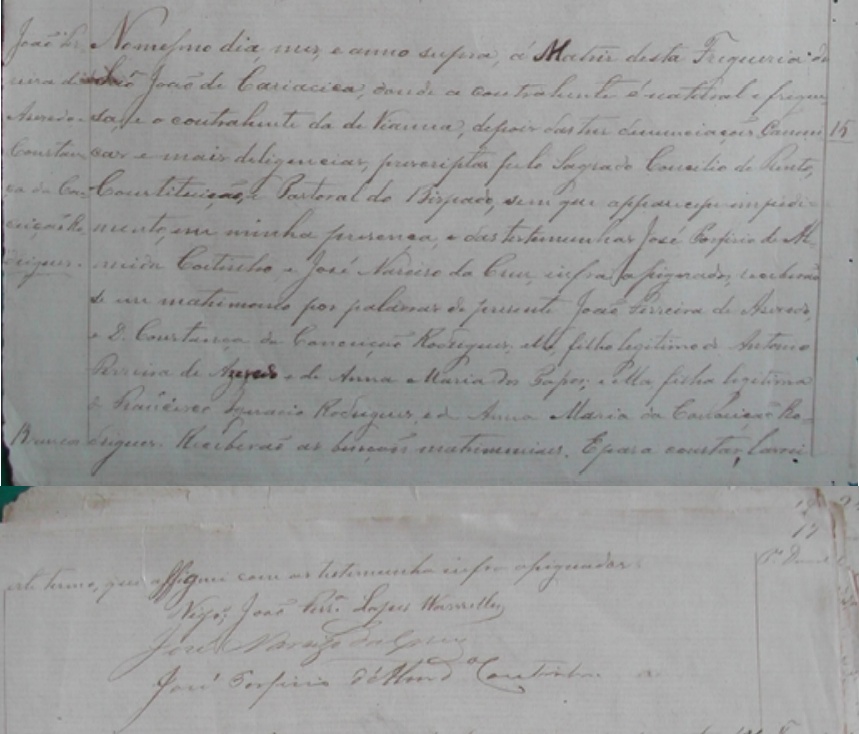 João Per
reira de
Azeredo e
Constan
ça da Con
ceição Ro
drigues.
Brancos
No mesmo dia, mez, e anno supra, á Matriz desta Freguezia de
São João de Cariacica, donde a contrahente é natural e fregue
sa, e o contrahente da de Vianna, depois das tres denunciações Canoni
cas e mais deligencias, prescriptas pelo Sagrado Concilio de Trento,
Constituição, e Pastoral do Bispado, sem que apparecesse impedi
mento, em minha presença, e das testemunhas José Porfirio de Al
meida Coitinho, e José Narciso da Cruz, infra assignados, receberão
se em matrimonio por palavras de presente João Pereira de Azeredo,
e D. Constança da Conceição Rodrigues, elle, filho legitimo de Antonio
Pereira de Azeredo e de Anna Maria dos Passos; e ella filha legitima
de Francisco Ignacio Rodrigues, e de Anna Maria da Conceição Ro
drigues. Receberão as bençãos matrimoniaes. E para constar, lavrei
15
17
este termo, que assignei com as testemunha infra assignadas.
Vigrº João Lopes
José Narciso da Cruz
José Porfirio d'Almdª Coutinho